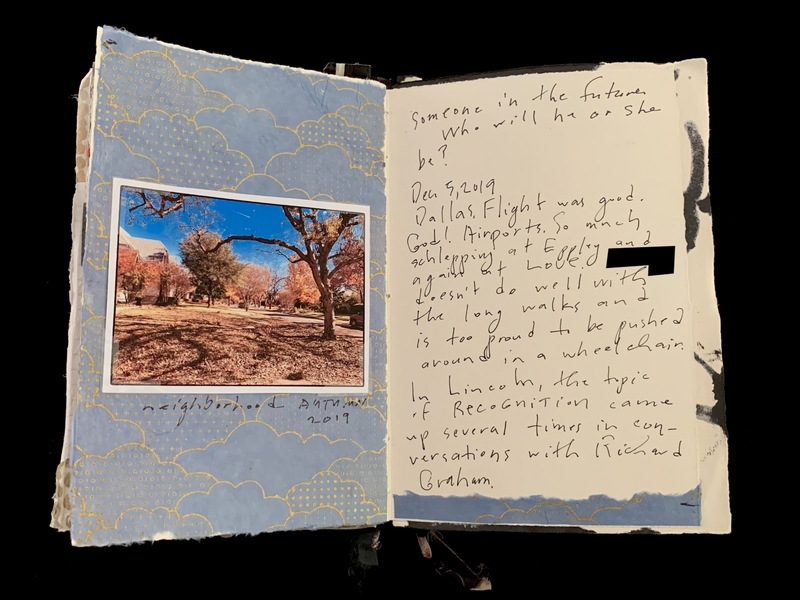 neighborhood AUTUMN
2019
Someone in the future
Who will he or she
be?
Dec 5, 2019
Dallas. Flight was good.
God! Airports. So much
schlepping at Eppley and
again at Love.
doesn't do well with
the long walks and
is too proud to be pushed
around in a wheelchair.
In Lincoln, the topic
of RECOGNITION came
up several times in con-
versations with Richard
Graham.